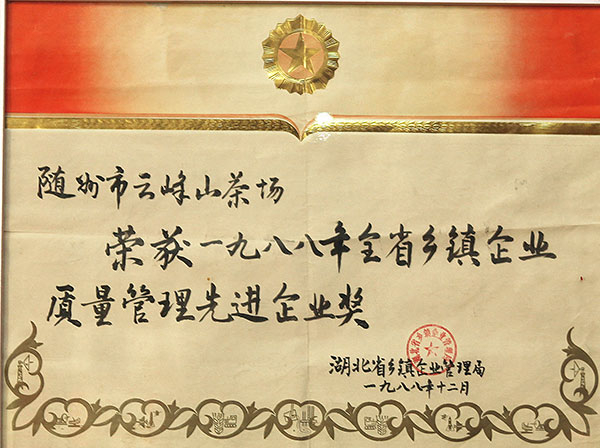 随州市云峰山茶场
荣获一九八八年全省乡镇企业
质量管理先进企业奖
湖北省乡镇企业管理局
一九八八年十二月
湖北省乡镇企业管理局